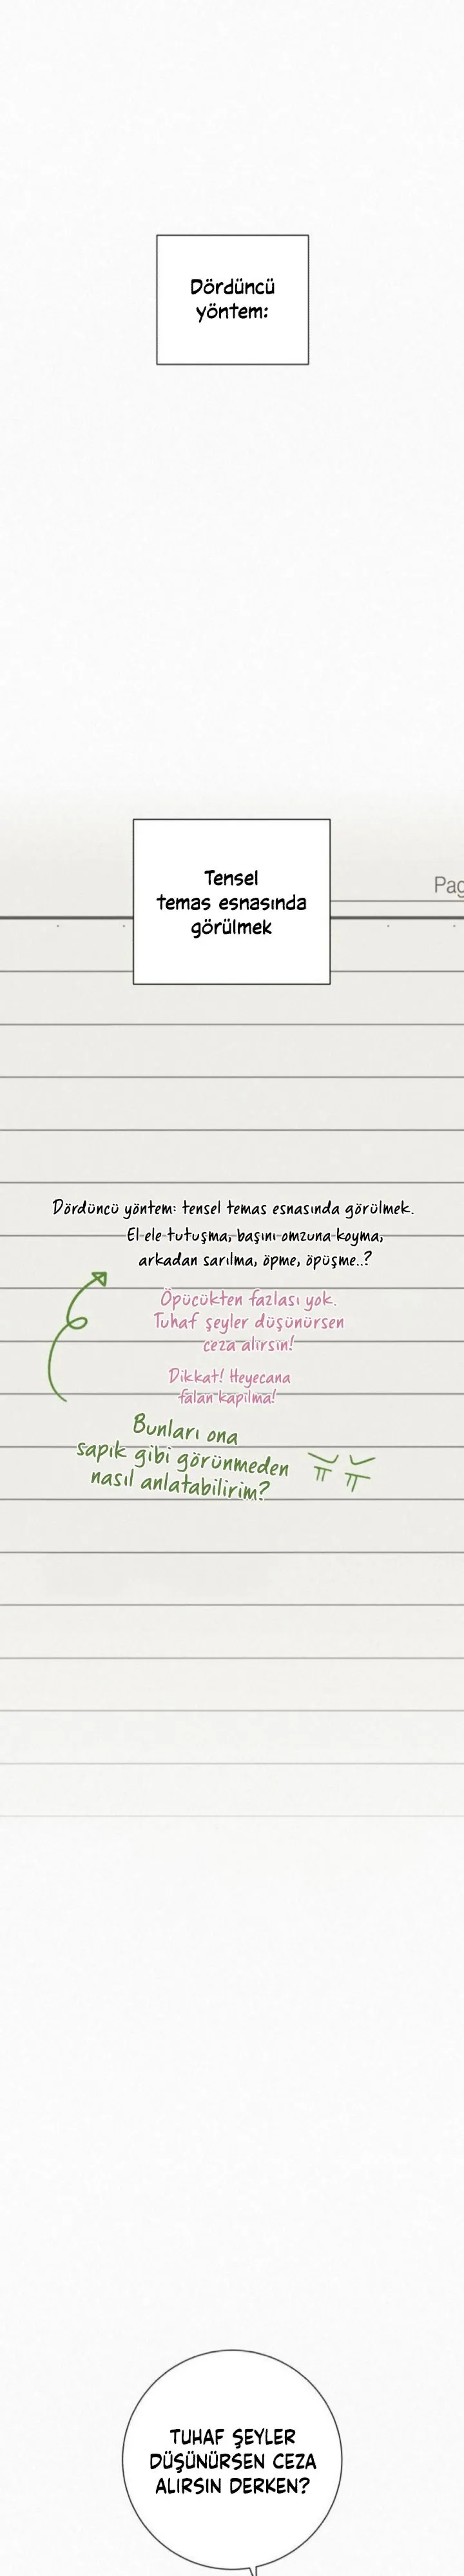 Dördüncü
yöntem:
Tensel
temas esnasında
görülmek
Pag
Dördüncü yöntem: tensel temas esnasında görülmek.
El ele tutuşma, başını omzuna koyma,
arkadan sarılma, öpme, öpüşme..?
Öpücükten fazlası yok.
Tuhaf şeyler düşünürsen
ceza alırsın!
Dikkat! Heyecana
falan kapılma!
Bunları ona
sapık gibi görünmeden
nasıl anlatabilirim?
TUHAF ŞEYLER
DÜŞÜNÜRSEN CEZA
ALIRSIN DERKEN?